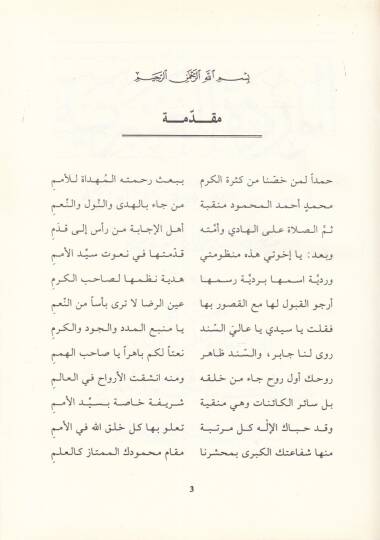 بسم الله الرحمن الرحيم
مقدّمة
حمداً لمن خصّنا من كثرة الكرم ببعث رحمته المُهداة للأممِ
محمدٍ أحمد المحمود منقبة من جاء بالهدى والنُّول والنَّعم
ثمّ الصلاة على الهادي وأمّته أهل الإجابة من رأس إلى قدمِ
وبعد: يا إخوتي هذه منظومتي قدمتها في نعوت سيّد الأممِ
ورديَّة اسمها برديَّة رسمها هدية نظمها لصاحب الكرمِ
أرجو القبول لها مع القصور بها عين الرضا لا ترى بأساً من النَّعمِ
فقلت يا سيدي يا عاليَ السّند يا منبع المدد والجود والكرمِ
روى لنا جابر، والسّند ظاهر نعتاً لكم باهراً يا صاحب الهممِ
روحك أول روح جاء من خلقه ومنه انشقت الأرواح في العالمِ
بل سائر الكائنات وهي منقبة شريفة خاصة بسيّد الأممِ
وقد حباك الإلٰه كل مرتبة تعلو بها كل خلق الله في الأممِ
منها شفاعتك الكبرى بمحشرنا مقام محمودك الممتاز كالعلمِ
3